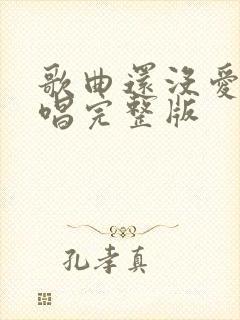 歌曲還沒愛
唱完整版
孔孝真